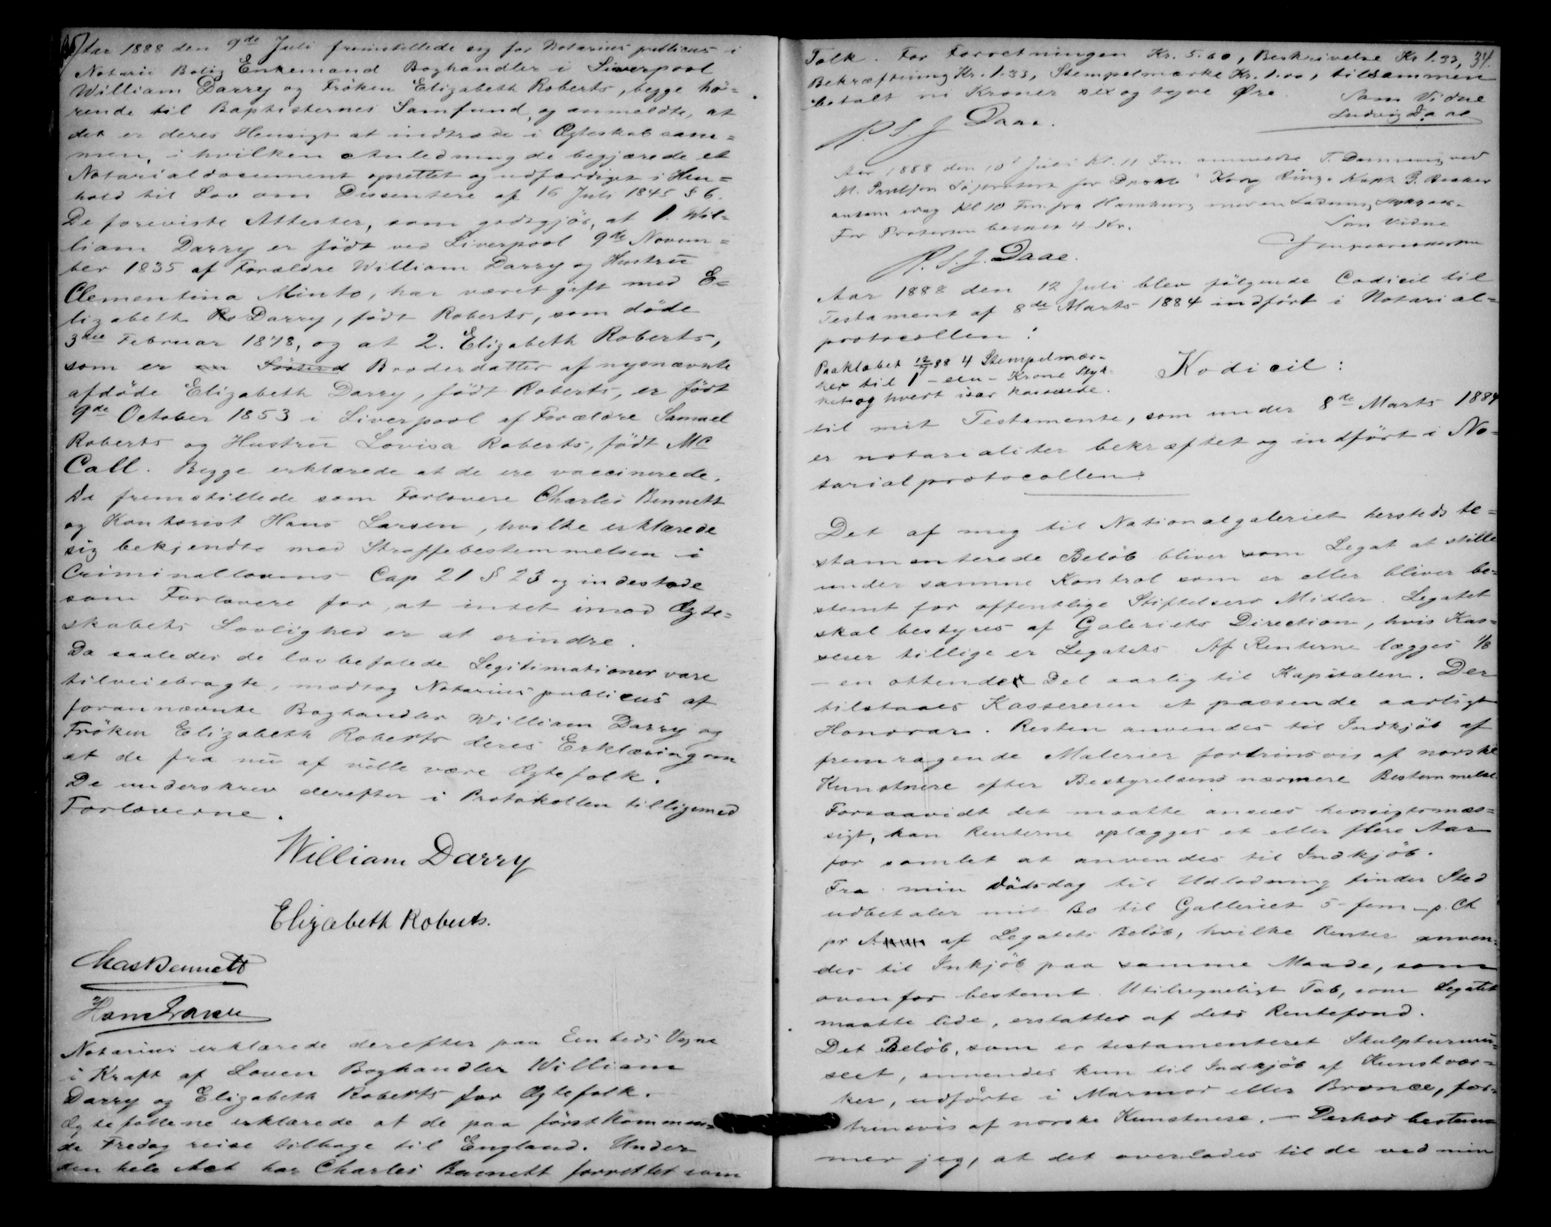 Aar 1888 den 9de Juli fremstillede sig for Notarius publicus i
Notarii Bolig Enkemand Boghandler i Liverpool
William Darry og Frøken Elizabeth Roberts, begge hø-
rende til Baptisternes Samfund, og anmeldte, at
det er deres Hensigt at indtræde i Ægteskab sam-
men, i hvilken Anledning de begjærede et
Notarialdocument oprettet og udfærdiget i Hen-
hold til Lov om Dissentere af 16 Juli 1845 § 6.
De foreviste Attester, som godtgjør, at 1. Wil-
liam Darry er født ved Liverpool 9de Novem-
ber 1835 af Forældre William Darry og Hustru
Clementina Minto, har været gift med E-
lizabeth Ro Darry, født Roberts, som døde
3die Februar 1878, og at 2. Elizabeth Roberts,
som er en Broderdatter af nysnævnte
afdøde Elizabeth Darry, født Roberts, er født
9de October 1853 i Liverpool af Forældre Samuel
Roberts og Hustru Lovisa Roberts, født Mc
Call. Begge erklærede at de ere vaccinerede.
Da fremstillede som Forlovere Charles Bennett
og Kontorist Hans Larsen, hvilke erklærede
sig bekjendte med Straffebestemmelsen i
Criminallovens Cap 21 § 23 og indestode
som Forlovere for, at intet imod Ægte-
skabets Lovlighed er at erindre.
Da saaledes de lovbefalede Legitimationer vare
tilveiebragte, modtog Notarius publicus af
forannævnte Boghandler William Darry og
Frøken Elizabeth Roberts deres Erklæring om
at de fra nu af ville være Ægtefolk.
De underskrev derefter i Protokollen tilligemed
Forloverne.
William Darry
Elizabeth Roberts.
Chas Bennett
Hans Larsen
Notarius erklærede derefter paa Embeds Vegne
i Kraft af Loven Boghandler William
Darry og Elizabeth Roberts for Ægtefolk.
Ægtefollene erklærede at de paa førstkommen-
de Fredag reise tilbage til England. Under
den hele Act har Charles Bennett forrettet som
34.
Tolk. For Forretningen Kr. 5.60, Beskrivelse Kr 1.33,
Bekræftning Kr. 1.33, Stempelmærke Kr. 1.00, tilsammen
betalt ni Kroner sex og tyve Øre.
Som Vidne
Ludvig Daae
P. S. J Daae.
Aar 1888 den 10d Juli Kl. 11 Fm. anmeldte T. ved
M. for Kapt
ankom idag Kl 10 Fm. fra Hamburg med en Ladning
For Protesten betalt 4 Kr.
Som Vidne
P. S. J. Daae.
Aar 1888 den 12 Juli blev følgende Codicil til
Testament af 8de Marts 1884 indført i Notarial-
protocollen:
Paaklæbet 12/7 88 4 Stempelmær-
ker til 1 - een - Krone Styk-
ket og hvert især kasserede.
Kodicil:
til mit Testamente, som under 8de Marts 1884
er notarialiter bekræftet og indført i No-
tarialprotocollen.
Det af mig til Nationalgaleriet hersteds te-
stamenterede Beløb bliver som Legat at stille
under samme Kontrol som er eller bliver be-
stemt for offentlige Stiftelsers Midler. Legatet
skal bestyres af Galeriets Direction, hvis Kas-
serer tillige er Legatets. Af Renterne lægges 1/8
- en ottende Del aarlig til Kapitalen. Der
tilstaaes Kassereren et passende aarligt
Honorar. Resten anvendes til Indkjøb af
fremragende Malerier fortrinsvis af norske
Kunstnere efter Bestyrelsens nærmere Bestemmelse
Forsaavidt det maatte ansees hensigtsmæs-
sigt, kan Renterne oplægges et eller flere Aar
for samlet at anvendes til Indkjøb.
Fra min Dødsdag til Udlodning finder Sted
udbetaler mit Bo til Galleriet 5 - fem - p. Ct
pr Annum af Legatets Beløb, hvilke Renter anven-
des til Inkjøb paa samme Maade, som
ovenfor bestemt. Utilregneligt Tab, som Legatet
maatte lide, erstattes af dets Rentefond.
Det Beløb, som er testamenteret Skulpturmu-
seet, anvendes kun til Indkjøb af Kunstvær-
ker, udførte i Marmor eller Bronce, for-
trinsvis af norske Kunstnere. - Derhos bestem-
mer jeg, at det overlades til de ved min